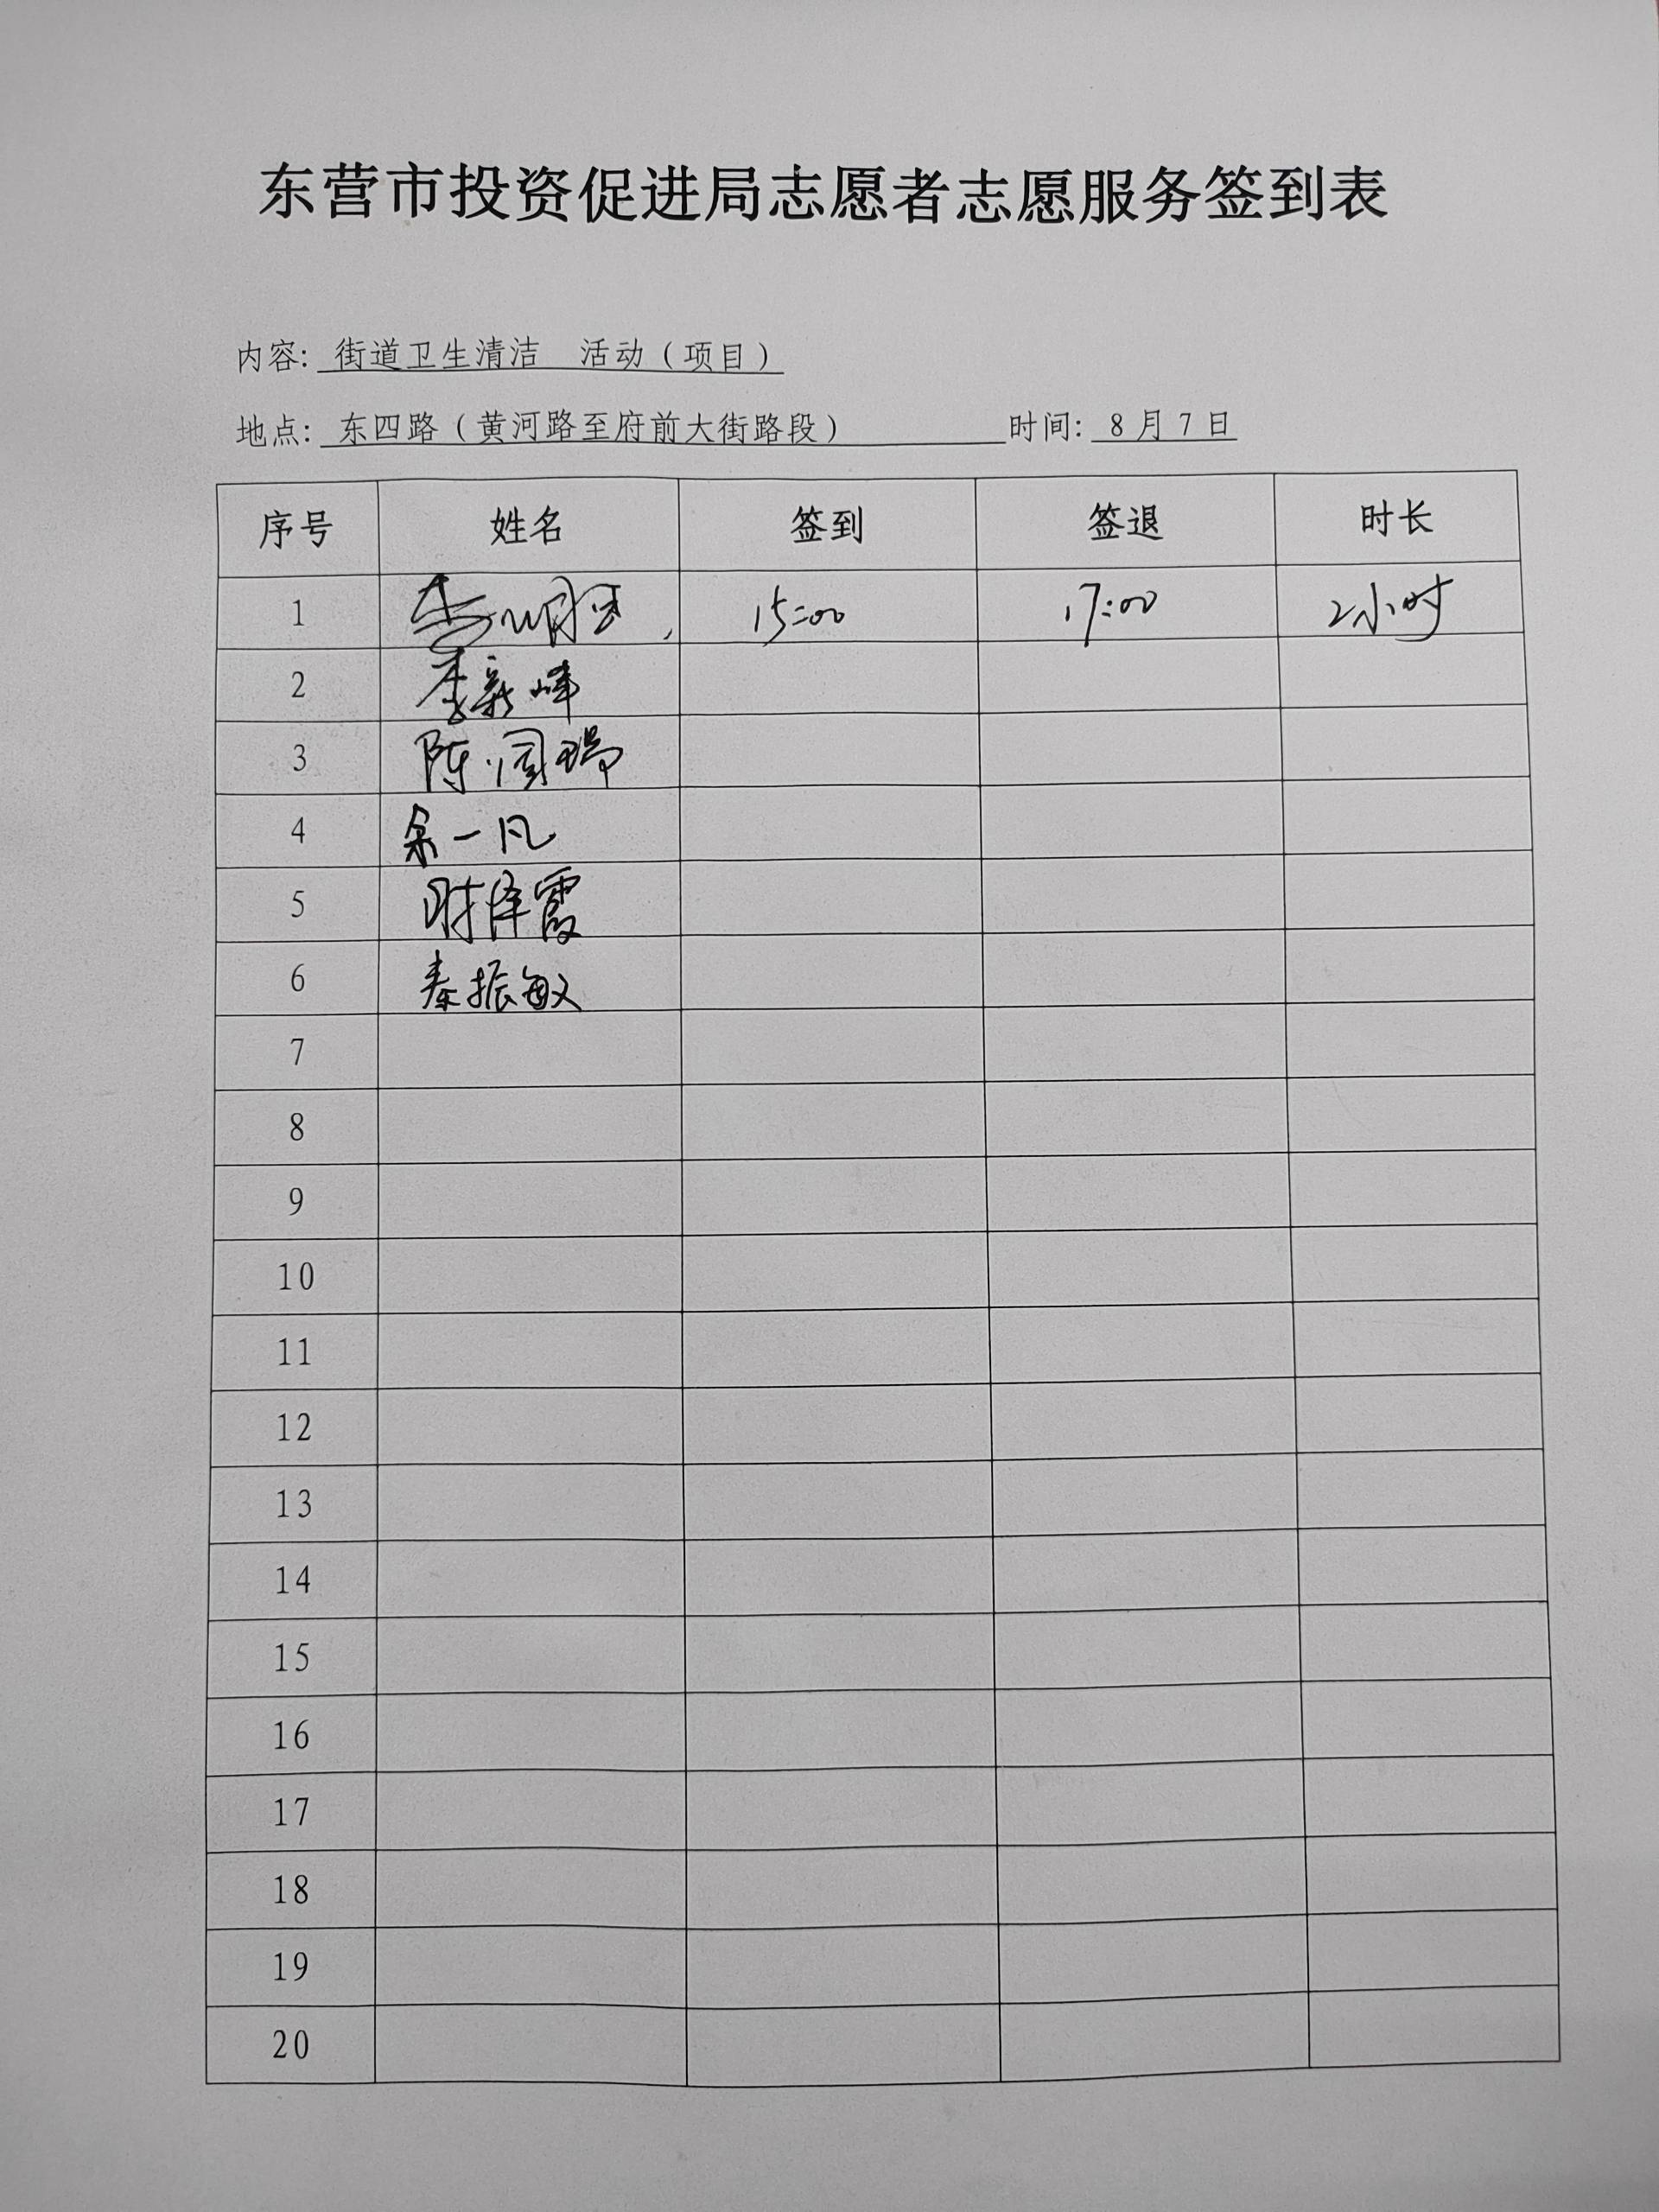 东营市投资促进局志愿者志愿服务签到表
内容: 街道卫生清洁 活动（项目）
地点: 东四路（黄河路至府前大街路段） 时间: 8月7日
序号 姓名 签到 签退 时长
1 15:00 17:00 2小时
2 李新峰
3 陈润瑞
4 余一凡
5 时泽霞
6 秦振敏
7
8
9
10
11
12
13
14
15
16
17
18
19
20